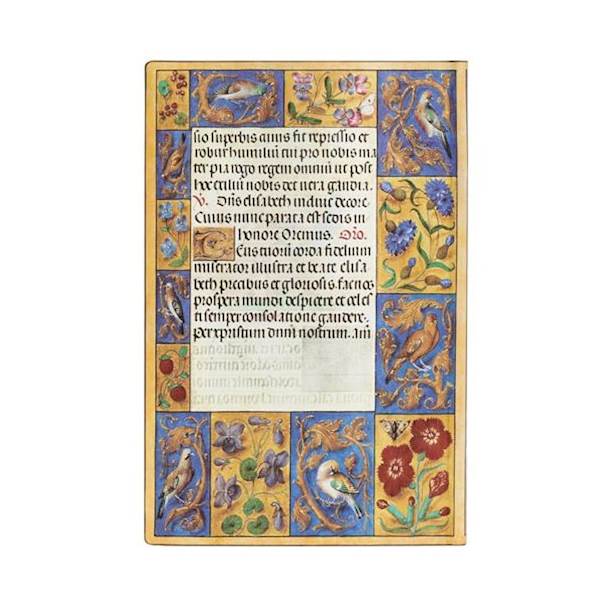 sio superbis cuius fit repressio et
robur humiliū tu pro nobis ma
ter pia rogo regem omniū ut post
hoc exiliū nobis det uera gaudia.
V. Dn̄s elisabeth induit decore
Cuius nunc parata est sedis in
honore Oremus. Oro.
Eus tuorū corda fidelium
miserator illustra et beate elisa
beth precibus et gloriosis. fac nos
prospera mundi despicere et celes
ti semper consolatione gaudere.
Per xpristum dnm̄ nostrum. Am